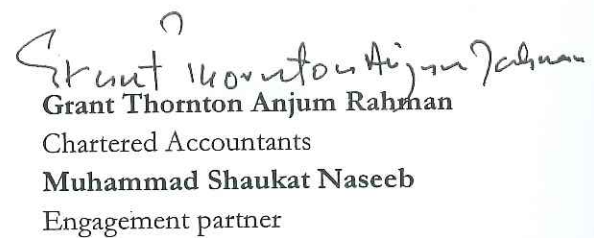 Grant Thornton Anjum Rahman
Grant Thornton Anjum Rahman
Chartered Accountants
Muhammad Shaukat Naseeb
Engagement partner